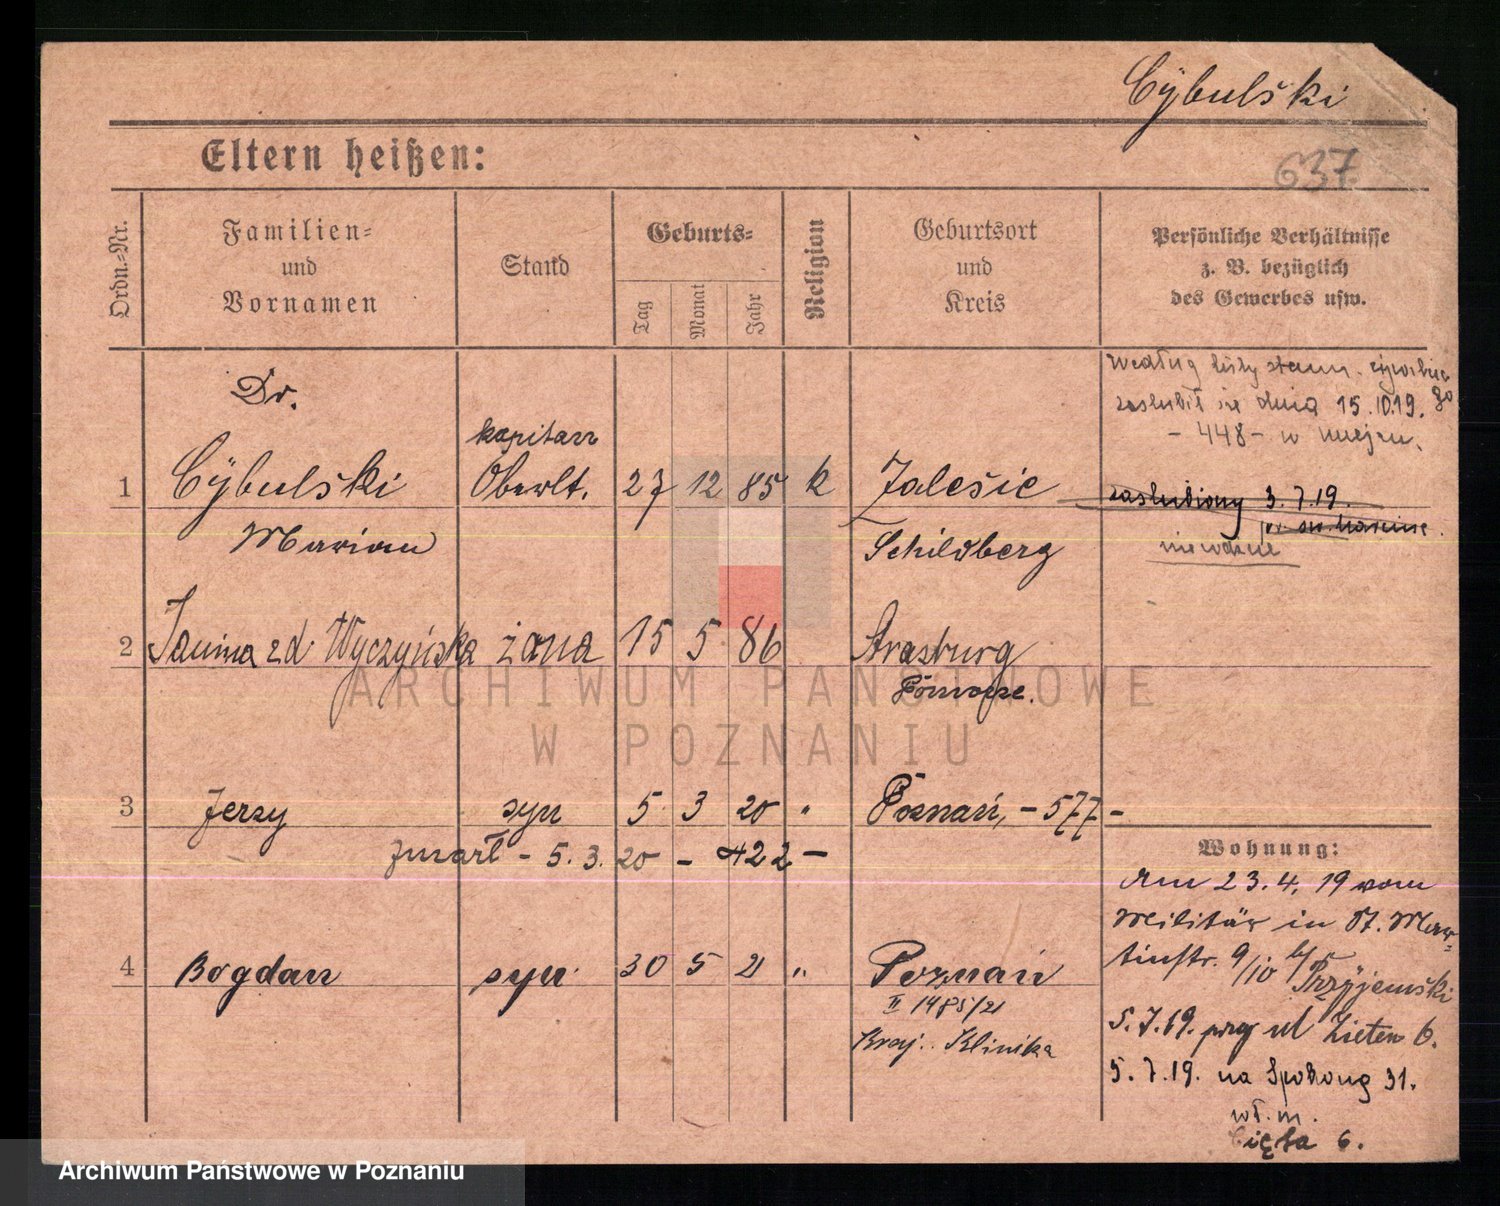 Cÿbulski
Eltern heißen:
637
Ordn.=Nr.
Familien=
und
Vornamen
Stand
Geburts=
Tag
Monat
Jahr
Religion
Geburtsort
und
Kreis
Persönliche Verhältnisse
z. B. bezüglich
des Gewerbes usw.
Według listy stanu cywilnego
zaślubił się dnia 15.10.19.
- 448 - w miejscu.
Dr.
kapitan
1 Cÿbulski Oberlt. 27 12 85 k Zalesie
zaślubiony 3.7.19.
Marian Schildberg
nieważne
2 Janina zd. Wyczyńska żona 15 5 86 Strasburg
3 Jerzy syn 5 3 20 " Poznań, - 577 -
zmarł - 5.3.20 - 422 -
Wohnung:
Am 23.4.19 vom
Militär in St. Mar-
tinstr. 9/10 b/ Przÿjemski
4 Bogdan syn 30 5 21 " Poznań
II 1485/21
Kraj. Klinika
5.7.19. przy ul Zieten 6.
5.7.19. na Spokojną 31.
wł. m.
6.
ARCHIWUM PAŃSTWOWE
W POZNANIU
Archiwum Państwowe w Poznaniu